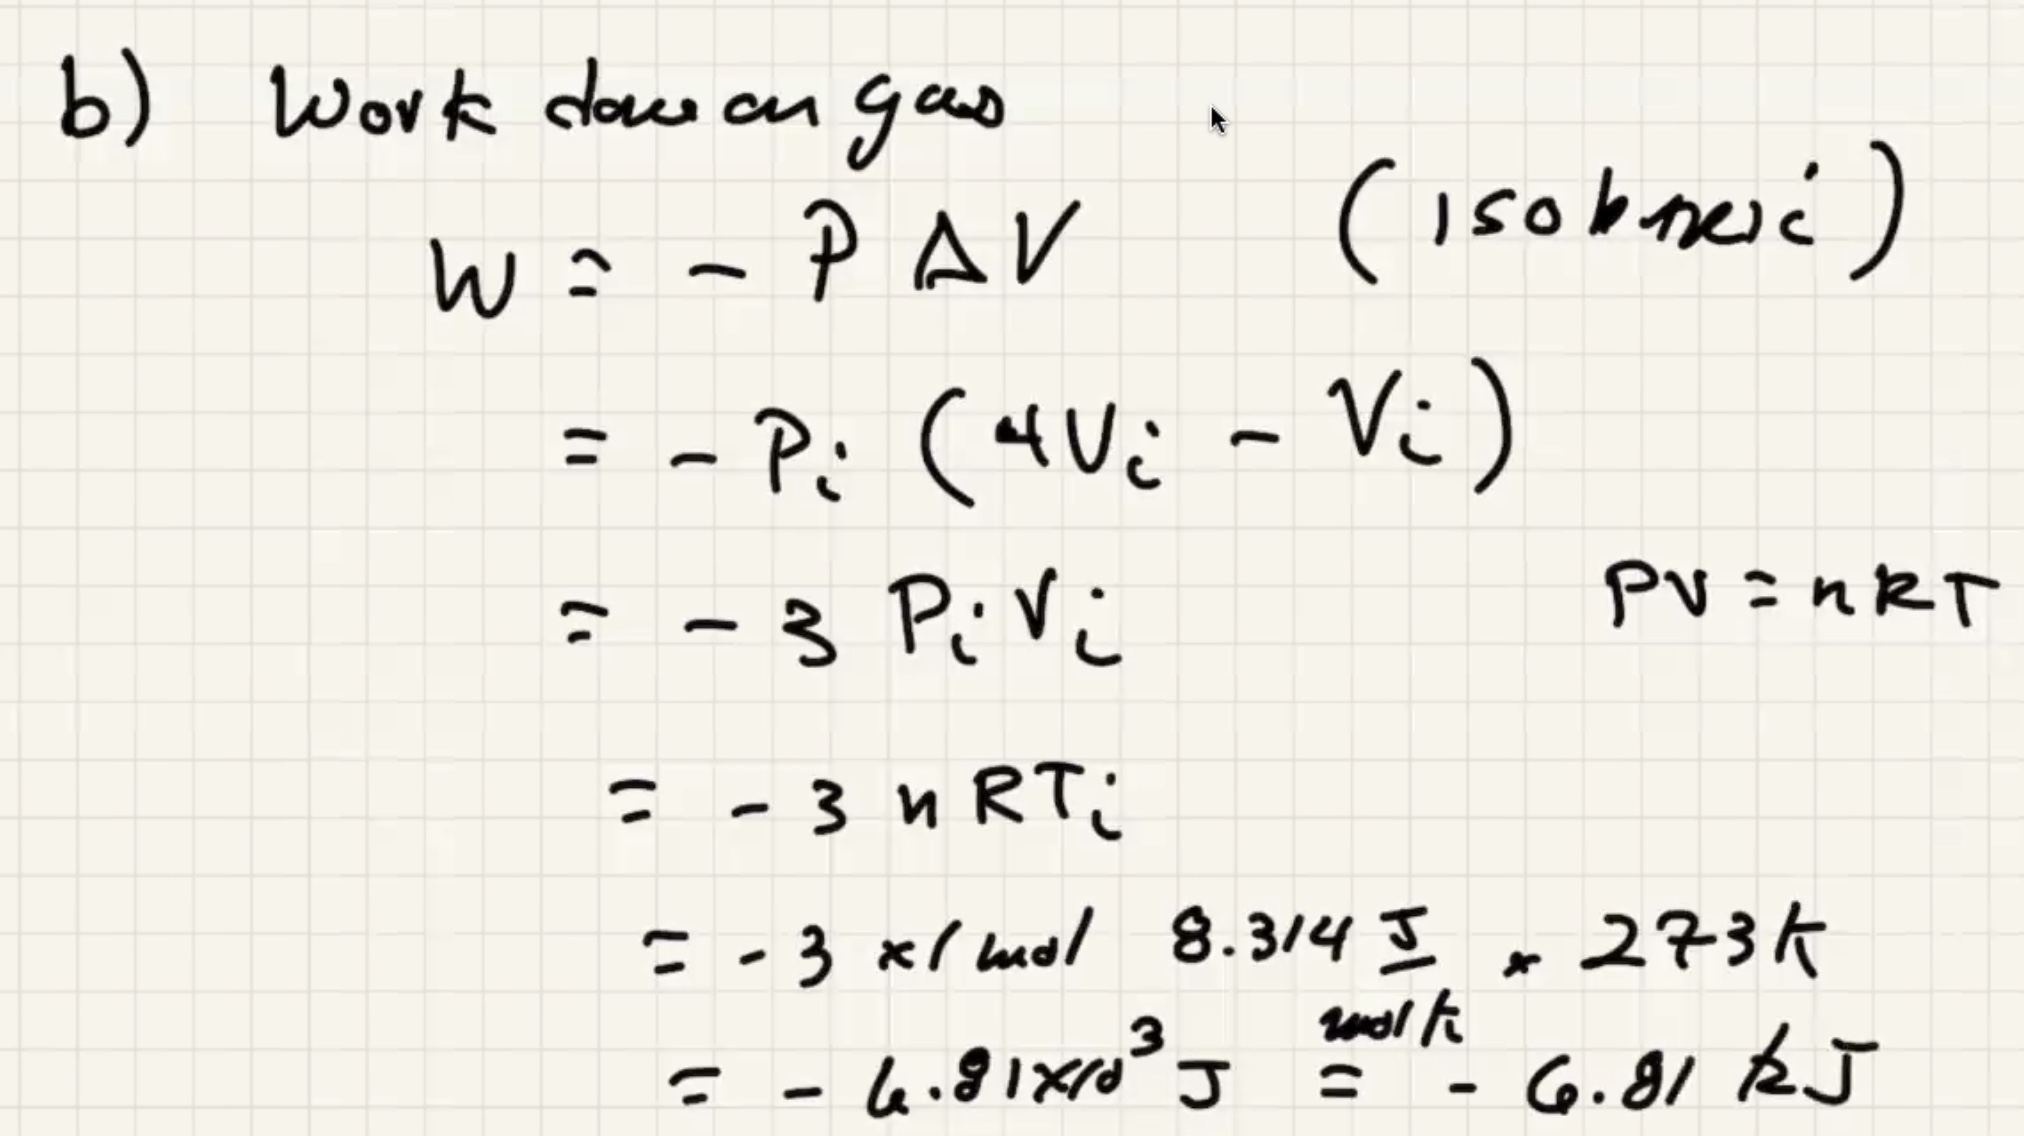 b) Work done on gas
W = - P ΔV (isobaric)
= - Pi (4Vi - Vi)
= - 3 Pi Vi PV = nRT
= - 3 n R Ti
= - 3 x 1 mol 8.314 J/mol K x 273 K
= - 6.81 x 10³ J = - 6.81 kJ